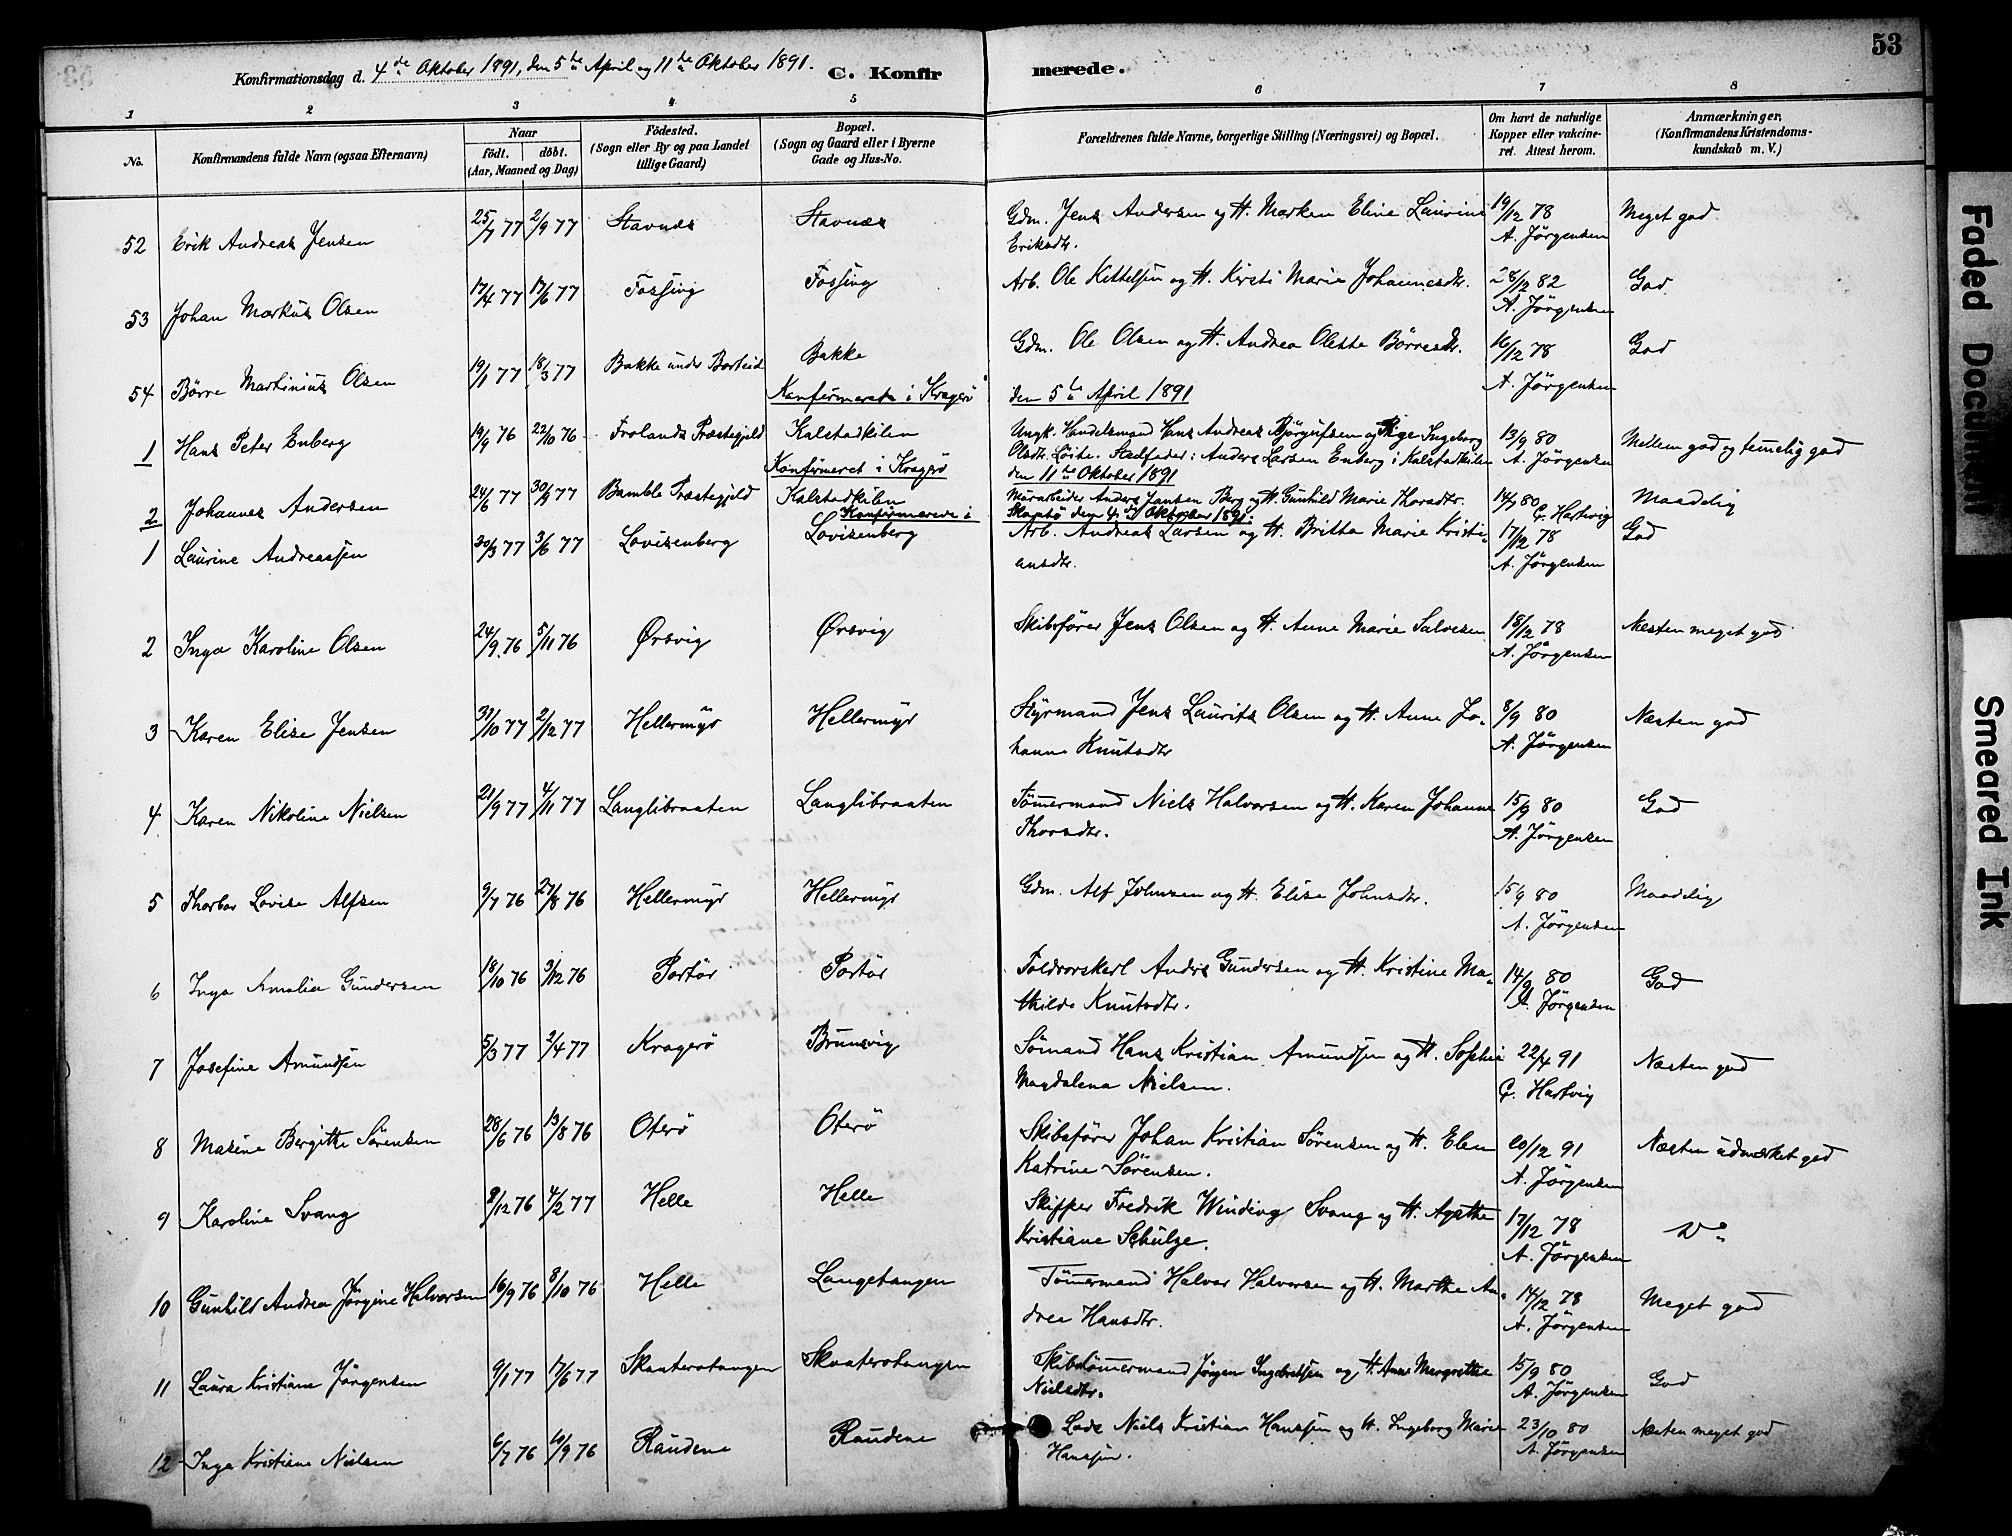 53
Konfirmationsdag d. 4de Oktober 1891, den 5te April og 11te Oktober 1891. C. Konfirmerede.
1 2 3 4 5 6 7 8
No. Konfirmandens fulde Navn (ogsaa Efternavn) Naar født. døbt. (Aar, Maaned og Dag) Fødested. (Sogn eller By og paa Landet tillige Gaard) Bopæl. (Sogn og Gaard eller i Byerne Gade og Hus-No. Forældrenes fulde Navne, borgerlige Stilling (Næringsvei) og Bopæl. Om havt de naturlige Kopper eller vakcineret. Attest herom. Anmærkninger, (Konfirmandens Kristendomskundskab m. V.)
52 Erik Andreas Jensen 25/7 77 2/9 77 Stavnæs Stavnæs Gdm. Jens Andersen og H. Marken Eline Laurine 19/12 78 Meget god
Eriksdtr. A. Jörgensen
53 Johan Markus Olsen 17/4 77 17/6 77 Fossing Fossing Arb. Ole Kittelsen og H. Kirsti Marie Johannesdtr. 28/12 82 God
A. Jörgensen
54 Börre Martinius Olsen 19/1 77 18/3 77 Bakke under Barteid Bakke Gdm. Ole Olsen og H. Andrea Olette Börresdtr. 16/12 78 God
A. Jörgensen
Konfirmeret i Kragerö den 5te April 1891
1 Hans Peter Enberg 19/9 76 22/10 76 Frolands Præstegjeld Kalstadkilen Ungk. Handelsmand Hans Andreas Björgufsen og Pige Ingeborg 13/9 80 Mellem god og temelig god
Olsdtr. Löite. Stedfader: Anders Larsen Enberg i Kalstadkilen A. Jörgensen
Konfirmeret i Kragerö den 11te Oktober 1891
2 Johannes Andersen 24/6 77 30/9 77 Bamble Præstegjeld Kalstadkilen Murarbeider Anders Jansen Berg og H. Gunhild Marie Thorsdtr. 14/9 80 Maadelig
Ç. Hartvig
Konfirmerede i Skaatö den 4de Oktober 1891.
1 Laurine Andreassen 30/3 77 3/6 77 Lovisenberg Lovisenberg Arb. Andreas Larsen og H. Britha Marie Kristi- 17/12 78 God
ansdtr. A. Jörgensen
2 Inga Karoline Olsen 24/9 76 5/11 76 Ørsvig Ørsvig Skibsförer Jens Olsen og H. Anne Marie Salvesen 18/12 78 Næsten meget god
A. Jörgensen
3 Karen Elise Jensen 31/10 77 2/12 77 Hellermyr Hellermyr Styrmand Jens Laurits Olsen og H. Anne Jo- 8/9 80 Næsten god
hanne Knutsdtr A. Jörgensen
4 Karen Nikoline Nielsen 21/9 77 4/11 77 Langlibraaten Langlibraaten Tömmermand Niels Halvorsen og H. Karen Johanne 15/9 80 God
Thorsdtr. A. Jörgensen
5 Thorbor Lovise Alfsen 9/7 76 27/8 76 Hellermyr Hellermyr Gdm. Alf Johnsen og H. Elise Johnsdtr. 15/9 80 Maadelig
A. Jörgensen
6 Inga Amalia Gundersen 18/10 76 3/12 76 Portör Portör Toldrorskarl Anders Gundersen og H. Kristine Ma- 14/9 80 God
thilde Knutsdtr. A. Jörgensen
7 Josefine Amundsen 5/3 77 2/4 77 Kragerö Brunsvig Sömand Hans Kristian Amundsen og H. Sophie 22/4 91 Næsten god
Magdalena Nielsen. Ç. Hartvig
8 Masine Bergitte Sörensen 28/6 76 13/8 76 Oterö Oterö Skibsförer Johan Kristian Sörensen og H. Elen 20/12 91 Næsten udmærket god
Katrine Sörensen. A. Jörgensen
9 Karoline Svang 8/12 76 4/2 77 Helle Helle Skipper Fredrik Winding Svang og H. Agathe 17/12 78
Kristiane Schulze. A. Jörgensen
10 Gunhild Andrea Jörgine Halvorsen 16/9 76 8/10 76 Helle Langetangen Tömmermand Halvor Halvorsen og H. Marthe An- 14/12 78 Meget god
drea Hansdtr. A. Jörgensen
11 Laura Kristiane Jörgensen 9/1 77 17/6 77 Skaaterotangen Skaaterotangen Skibstömmermand Jörgen Ingebretsen og H. Anne Margrethe 15/9 80 God
Nielsdtr. A. Jörgensen
12 Inga Kristiane Nielsen 6/7 76 10/9 76 Raudene Raudene Lods Niels Kristian Hanssen og H. Ingeborg Marie 23/10 80 Næsten meget god
Hanssen. A. Jörgensen
Faded Document
Smeared Ink